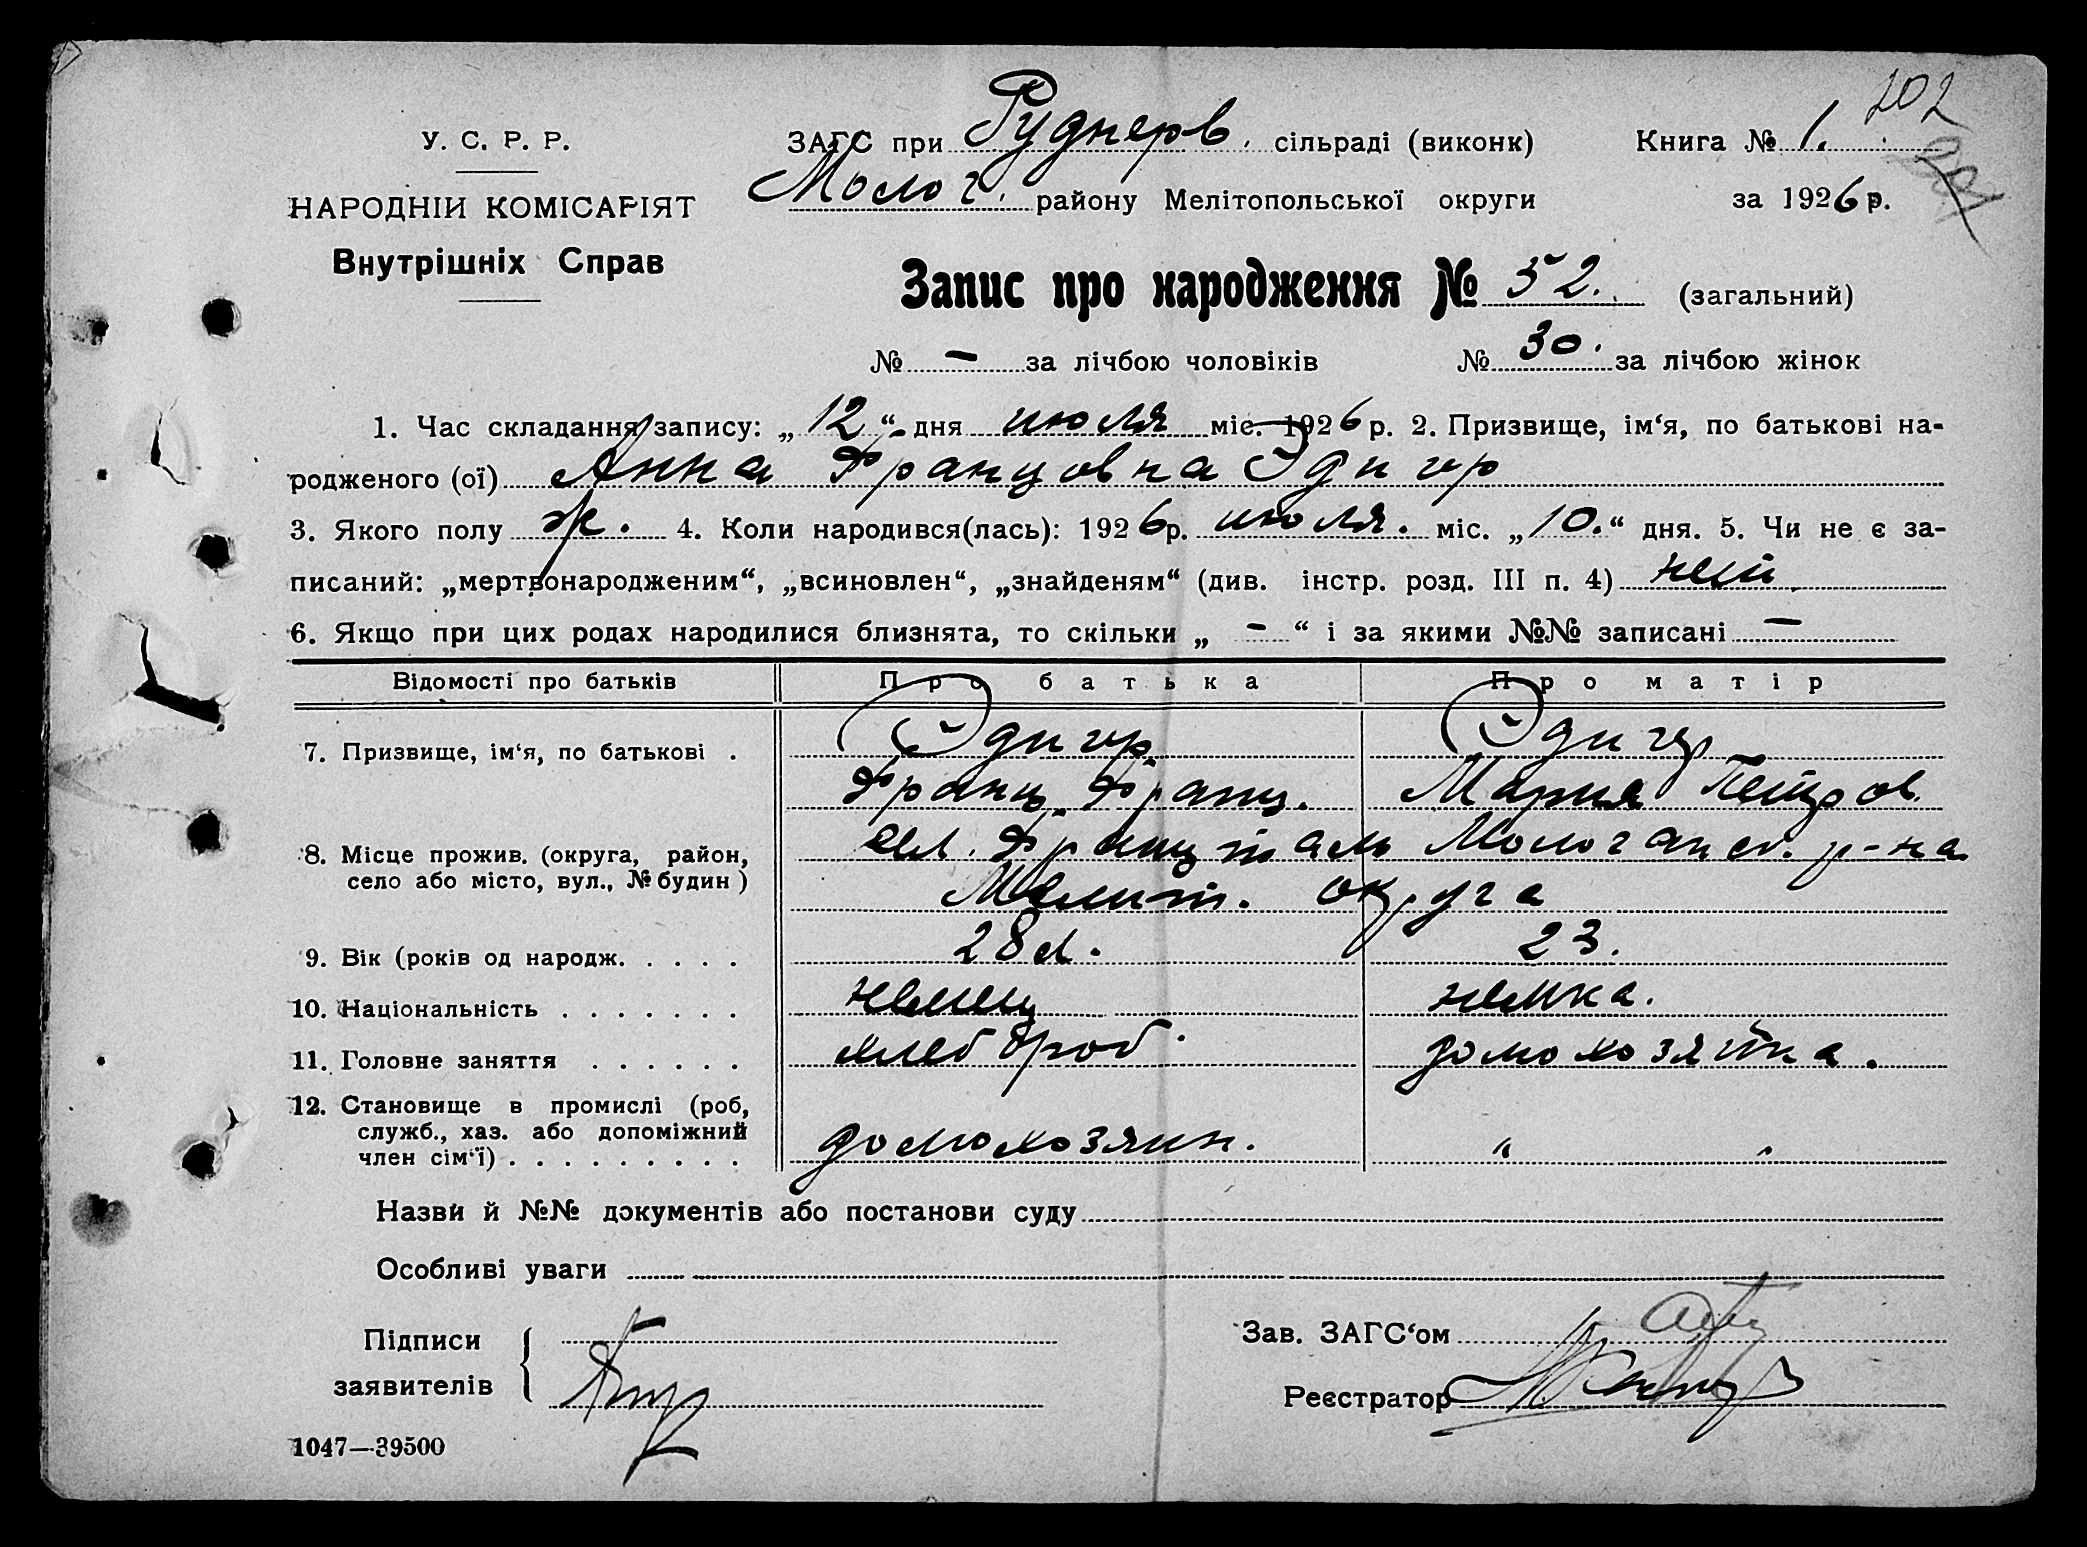 202
У. С. Р. Р.
НАРОДНІЙ КОМІСАРІЯТ
Внутрішніх Справ
ЗАГС при Руднерв. сільраді (виконк) Книга № 1.
Молоч. району Мелітопольської округи за 1926 р.
Запис про народження № 52. (загальний)
№ — за лічбою чоловіків № 30. за лічбою жінок
1. Час складання запису: „12“ дня июля міс. 1926 р. 2. Призвище, ім‘я, по батькові на-
родженого (ої) Анна Францовна Эдигер
3. Якого полу ж. 4. Коли народився(лась): 1926 р. июля. міс. „10.“ дня. 5. Чи не є за-
писаний: „мертвонародженим“, „всиновлен“, „знайденям“ (див. інстр. розд. III п. 4) нет
6. Якщо при цих родах народилися близнята, то скільки „ - “ і за якими №№ записані —
Відомості про батьків Про батька Про матір
7. Призвище, ім‘я, по батькові . Эдигер Эдигер
Франц. Франц. Мария Петров.
8. Місце прожив. (округа, район, село або місто, вул., № будин) сел. Францталь Молочанск. р-на
Мелит. округа
9. Вік (років од народж. . . . . 28 л. 23.
10. Національність . . . . . . . немец немка.
11. Головне заняття . . . . . . хлебороб. домохозяйка.
12. Становище в промислі (роб,
служб., хаз. або допоміжний
член сім‘ї) . . . . . . . . . домохозяин. “ .
Назви й №№ документів або постанови суду
Особливі уваги
Підписи
заявителів
Зав. ЗАГС‘ом
Реєстратор
1047—39500